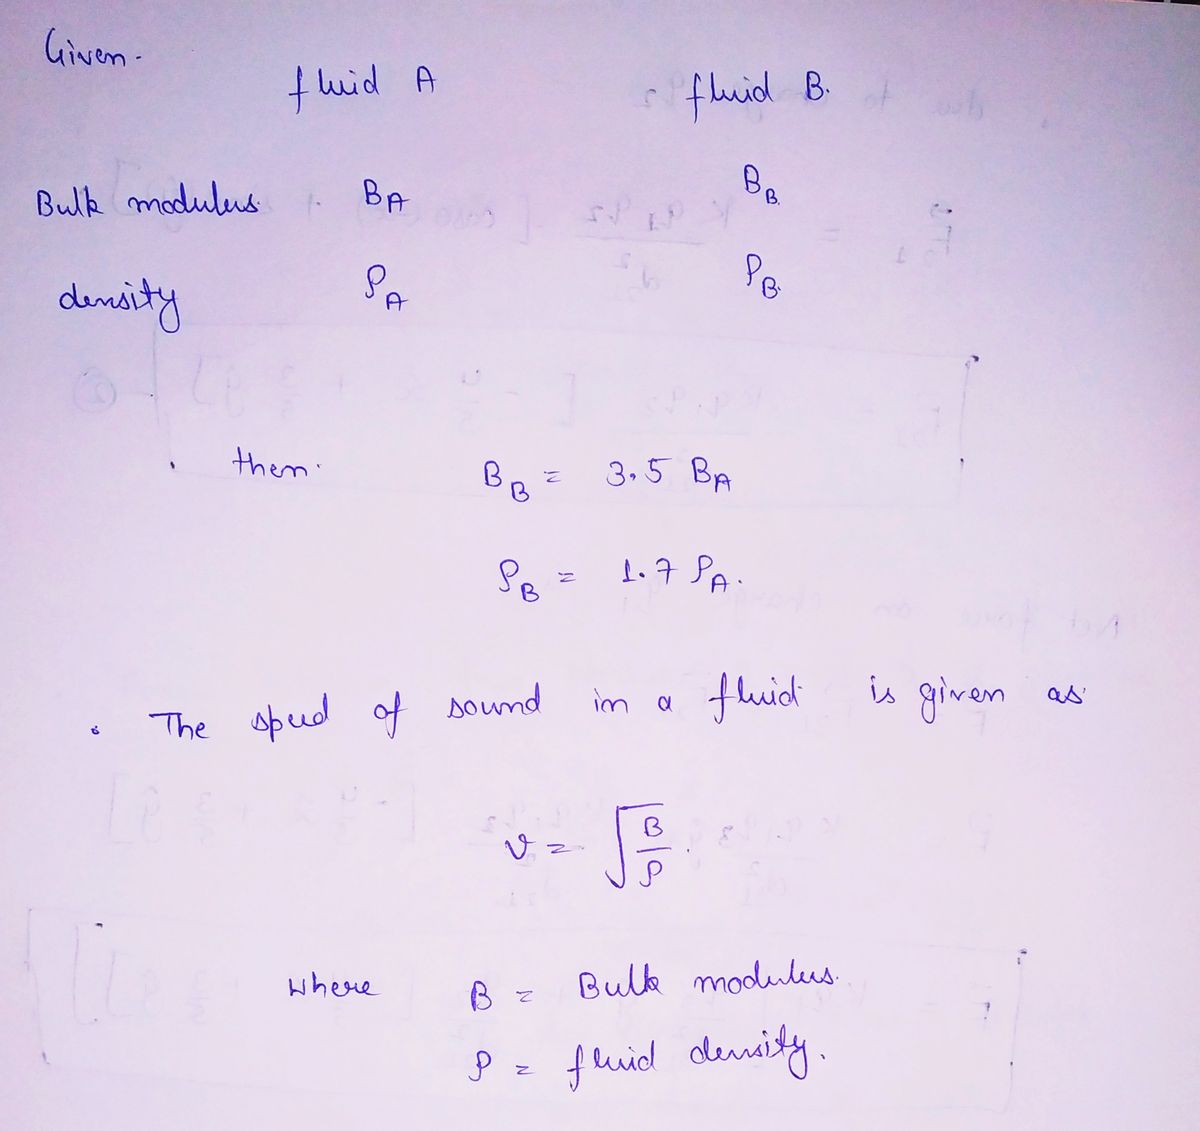 Given -
fluid A fluid B.
Bulk modulus. B_A B_B.
density ρ_A ρ_B.
then. B_B = 3.5 B_A
ρ_B = 1.7 ρ_A.
• The speed of sound in a fluid is given as
v = √(B/ρ).
where B = Bulk modulus.
ρ = fluid density.